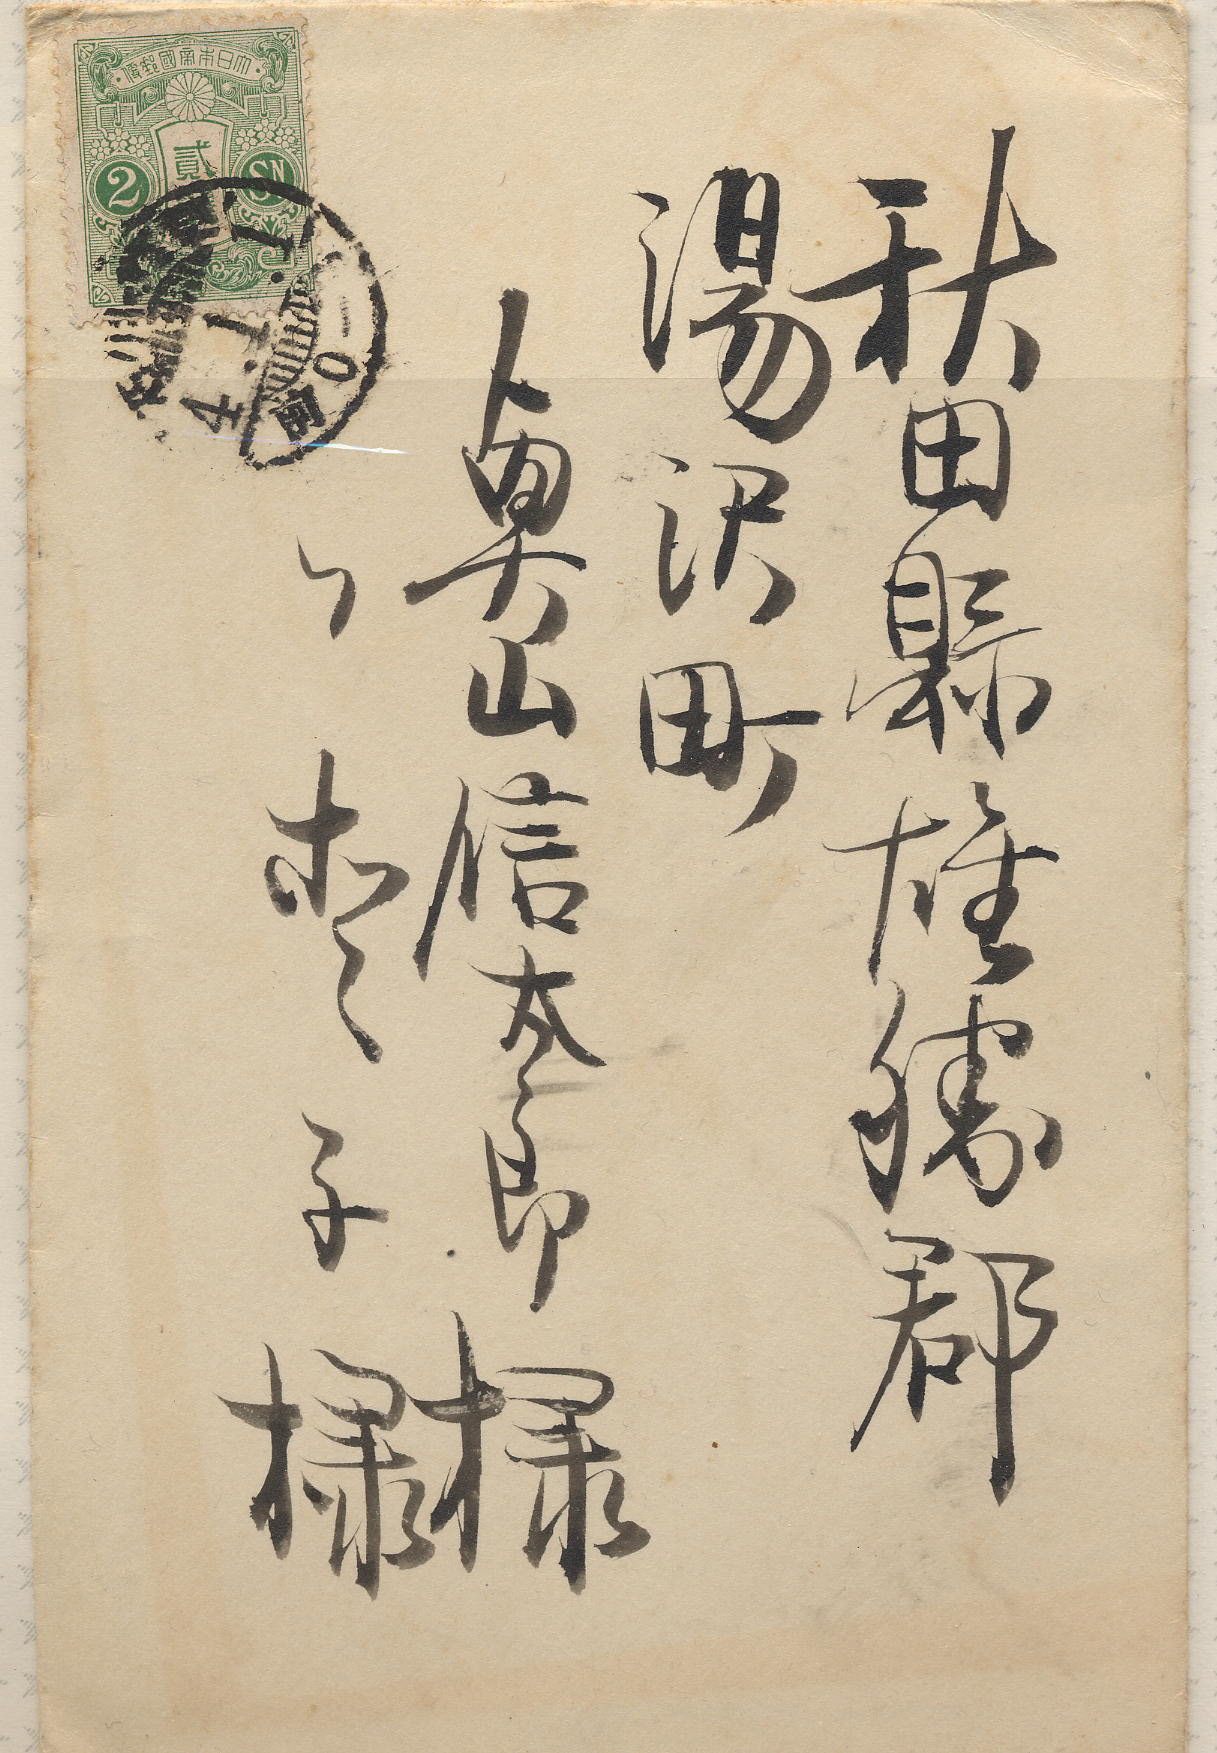 大日本帝國郵便
貳
2 SN
4.1.1
秋田縣雄勝郡
湯沢町
奥山信太郎様
子様